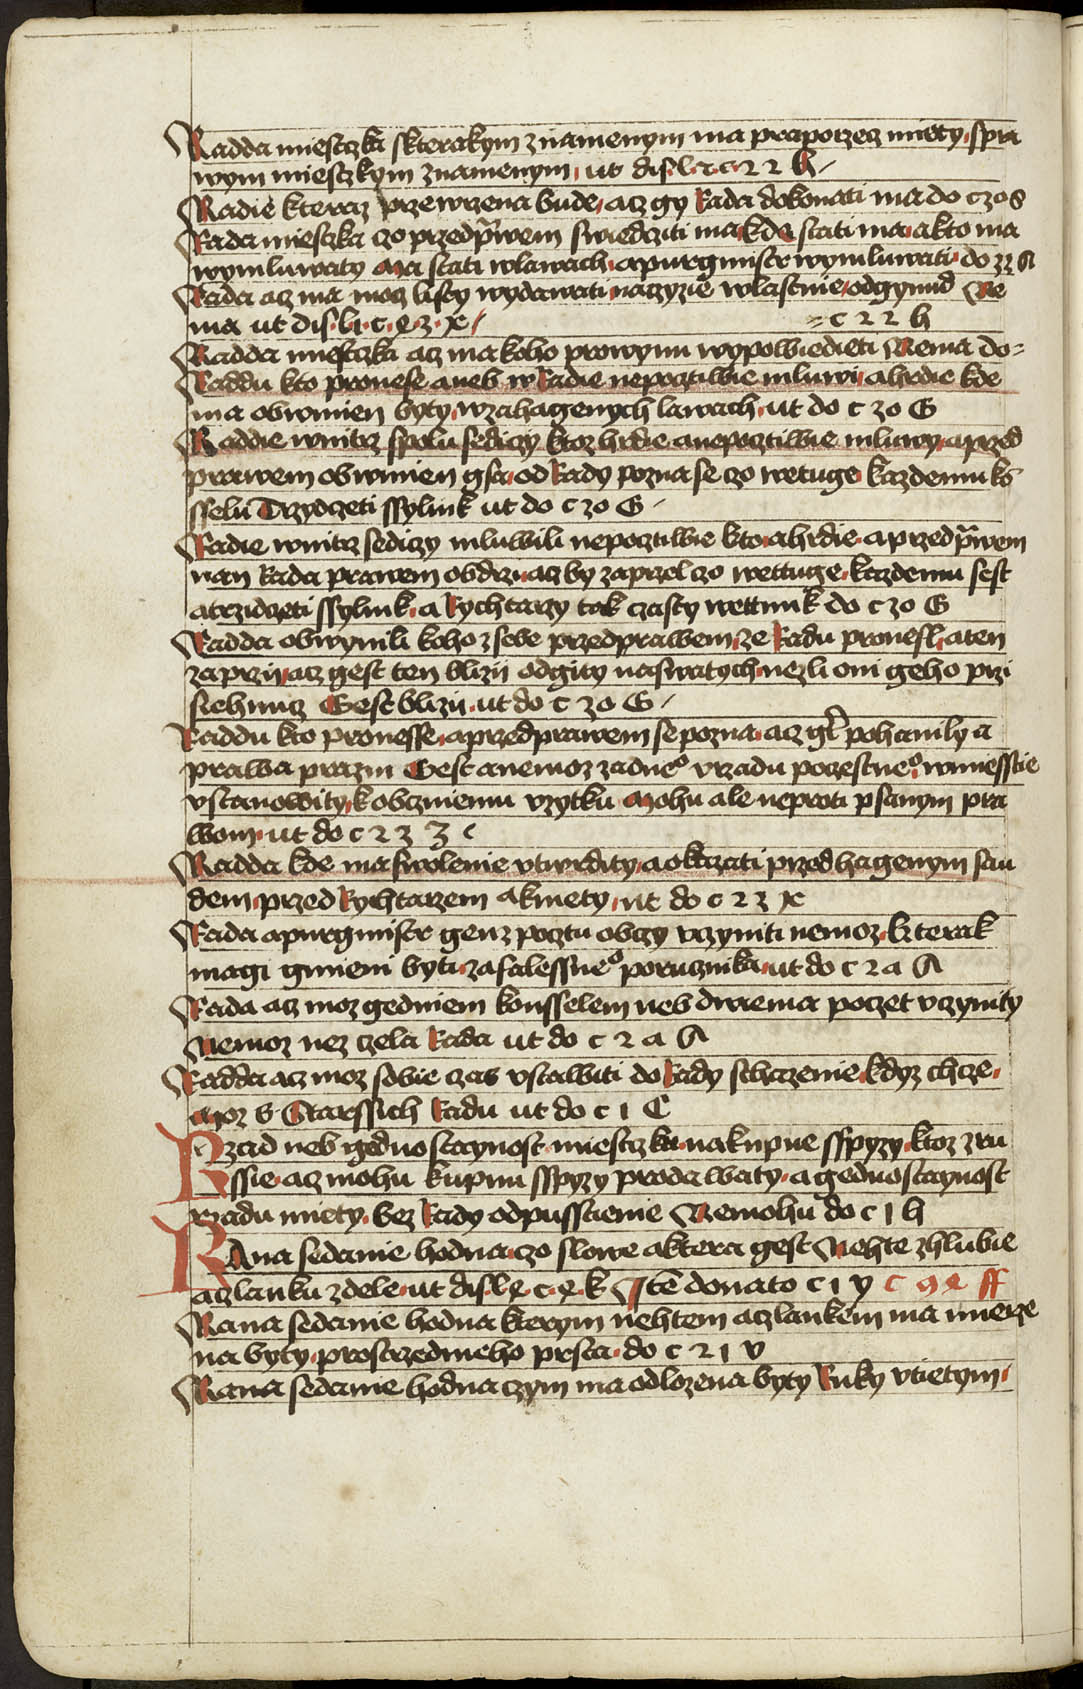 Radda miestzka skterakym znamenym ma praporzecz miety · spra
wym miestzkym znamenym · ut dis · l · c · 22 h
Radie kteraz przewrzena bude · acz gy Rada dokonati ma do c 20 s
Rada miestzka czo przed prawem swiedcziti ma kde stati ma · akto ma
wymluwaty Ma stati wlawach · apurgmistr wymluwati · do 22 A
Rada acz ma mocz listy wydawati naczyzie wlastnie · odgynud Ne
ma ut dis · l · i · c · e · z · x · = c 22 h
Radda miestzka acz ma koho prowynu wypowiedieti Nema do =
Raddu kto pronese aneb wRadie nepocztiwie mluwi · ahrdie kde
ma obwinien byty · wzahagenych lawach · ut do c 20 G
Raddie wnitrz spolu sediczy ktoz hrdie anepocztiwie mluwy · aprzed
prawem obwinien gsa · od Rady pozna se czo wetuge kazdemu kon
sselu Trzydczeti ssylink ut do c 20 G
Radie wnitrz sediczy mluwili nepocztiwie kto · ahrdie · aprzed prawem
nan Rada prawem obdrzi · acz by zaprzel czo wettuge · kazdemu sest
atrzidczeti ssylink · a Rychtarzy tak czasty wettunk do c 20 G
Radda obwynili koho zsebe przedprawem · ze Radu pronesl · aten
zaprzii · acz gest ten blizii odgity naswatych · nezli oni geho przi
siehnucz Gest blizii · ut do c 20 G
Raddu kto pronesse · aprzedprawem sepozna · acz gest pohanily a
prawa prazni Gest anemoz zadneo vrzadu poczestneo · wmiesstie
vstanowity · kobczniemu vzytku Mohu ale neproti psanym pra
wom · ut do c 23 3 c
Radda kde ma swolenie vtwrdity · aokazati przed hagenym sau
dem · przed Rychtarzem akmety · ut do c 23 x
Rada apurgmistr genz pocztu obczy vczyniti nemoz · kterak
magi gmieni byti · zafalessneo porucznika · ut do c 2 a A
Rada acz moz gedniem konsselem neb dwiema poczet vczynity
Nemoz nez czela Rada ut do c 2 a A
Radda acz moz sobie czas vstawiti do Rady schazenie · kdyz chcze ·
Moz S Starssich Radu ut do c 1 C
Rzad neb gednostaynost · miestzka · nakupne sspyzy · ktoz zru
ssie · acz mohu kupnu sspyzy prodawaty · agednostaynost
rzadu miety · bez Rady odpusstienie Nemohu do c 1 h
RAna sedanie hodna · czo slowe aktera gest Nehte zhlubie
aczlanku zdele · ut dis · l e · c · e · k Ite donato c 1 y c 9 e ff
Rana sedanie hodna kterym nehtem aczlankem ma mierze
na byty · prostrzednieho prsta · do c 21 v
Rana sedanie hodna czym ma odlozena byty Ruky vtietym ·